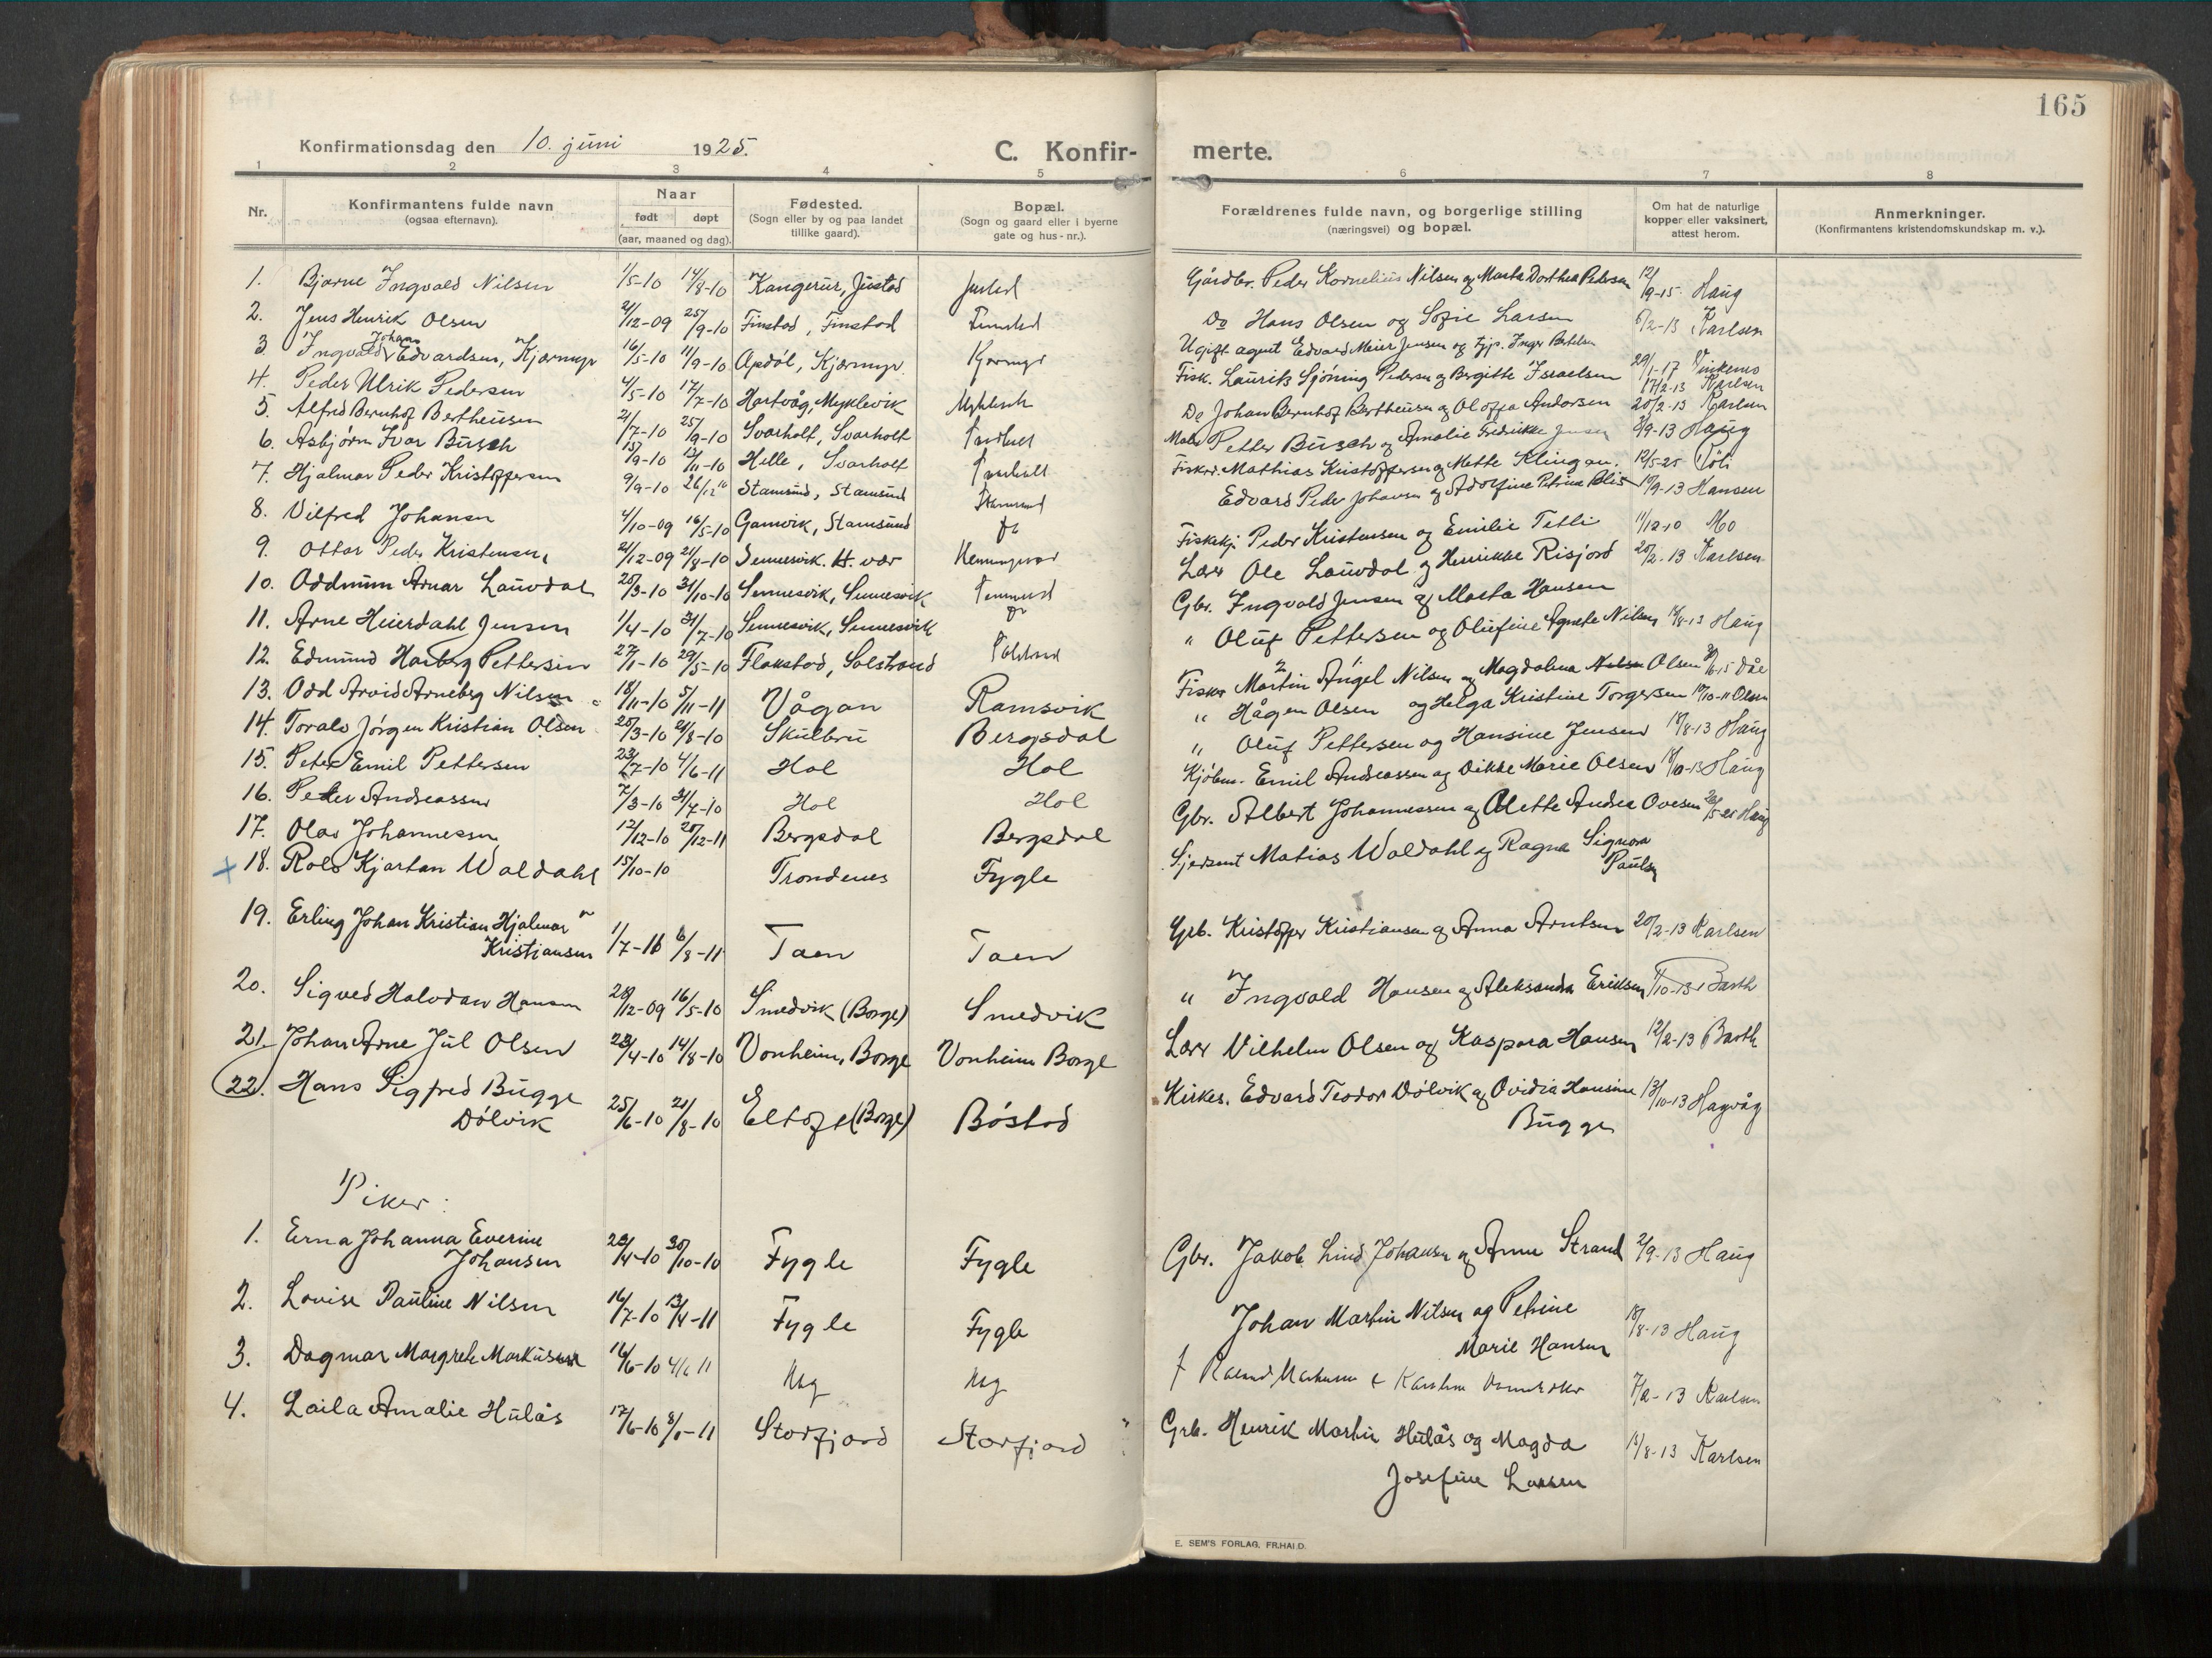 165
Konfirmationsdag den 10. juni 1925. C. Konfir- merte.
1 2 3 4 5 6 7 8
Nr. Konfirmantens fulde navn (ogsaa efternavn). Naar født døpt (aar, maaned og dag). Fødested. (Sogn eller by og paa landet tillike gaard). Bopæl. (Sogn og gaard eller i byerne gate og hus-nr.). Forældrenes fulde navn, og borgerlige stilling (næringsvei) og bopæl. Om hat de naturlige kopper eller vaksinert, attest herom. Anmerkninger. (Konfirmantens kristendomskundskap m. v.).
1. Bjarne Ingvald Nilsen 1/5-10 14/8-10 Kangerur, Justad Justad Gårdbr. Peder Kornelius Nilsen og Marta Dorthea Pedersen 12/9-15 Haug
2. Jens Henrik Olsen 21/12-09 25/9-10 Finstad, Finstad Finstad Do Hans Olsen og Sofie Larsen 6/2-13 Karlsen
3. Ingvald Johan Edvardsen, Kjærmyr 16/5-10 11/9-10 Opdøl, Kjærmyr. Kjærmyr Ugift agent Edvard Meier Jensen og tjp. Inger Bertelsen 29/1-17 Vinkenes
4. Peder Ulrik Pedersen 4/5-10 17/7-10 Hartvåg, Myklevik Myklevik Fisk. Laurits Sjöning Pedersen og Bergitte Israelsen 17/2-13 Karlsen
5. Alfred Bernhof Bertheusen 21/7-10 25/9-10 Svarholt, Svarholt Svarholt Do Johan Bernhof Bertheusen og Oloffa Andorsen 20/2-13 Karlsen
6. Asbjørn Ivar Busch 15/9-10 13/11-10 Helle, Svarholt Svarholt Maler Petter Busch og Amalie Fredrikke Jensen 2/9-13 Haug
7. Hjalmar Peder Kristoffersen 9/9-10 26/12 10 Stamsund, Stamsund Stamsund Fisker. Mathias Kristoffersen og Mette Klingan. 12/5-25
8. Vilfred Johansen 4/10-09 16/5-10 Gamvik, Stamsund Edvard Peder Johansen og Adolfine Petrine 10/9-13 Hansen
9. Ottar Peder Kristensen 21/12-09 21/8-10 Sennesvik. H. vær Henningsvær Fiskekj. Peder Kristensen og Emilie Tetli 11/12-10 Mo
10. Oddmun Arnar Lauvdal 25/3-10 31/10-10 Sennesvik, Sennesvik Lær Ole Lauvdal og Henrikke Risjord 20/2-13 Karlsen
11. Arne Heierdahl Jensen 1/4-10 31/7-10 Sennesvik, Sennesvik Gbr. Ingvald Jensen og Marta Hansen
12. Edmund Harberg Pettersen 27/1-10 29/5-10 Flakstad, Solstrand " Oluf Pettersen og Olufine Agnete Nilsen 18/8-13 Haug
13. Odd Arvid Arneberg Nilsen 18/11-10 5/11-11 Vågan Ramsvik Fisker Martin Angel Nilsen og Magdalena Olsen 30/6-15 Dåe
14. Toralv Jørgen Kristian Olsen 25/3-10 21/8-10 Skulbru Bergsdal " Hågen Olsen og Helga Kristine Torgersen 17/10-11 Olsen
15. Peter Emil Pettersen 23/7-10 4/6-11 Hol Hol " Oluf Pettersen og Hansine Jensen 18/8-13 Haug
16. Peder Andreassen 7/3-10 31/7-10 Hol Hol Kjöbm. Emil Andreassen og Dikke Marie Olsen 18/10-13 Haug
17. Olav Johannessen 12/12-10 25/12-11 Bergsdal Bergsdal Gbr. Albert Johannessen og Olette Andrea Ovesen 26/5-25 Haug
x 18. Rolv Kjartan Waldahl 15/10-10 Trondenes Fygle Matias Waldahl og Ragna Signora
Paulsen
19. Erling Johan Kristian Hjalmar
Kristiansen 1/7-11 6/8-11 Taen Taen Grb. Kristoffer Kristiansen og Anna Arntsen 20/2-13 Karlsen
20. Sigved Halvdan Hansen 28/12-09 16/5-10 Smedvik (Borge) Smedvik " Ingvald Hansen og Aleksandra Eriksen 11/10-13 Barth
21. Johan Arne Jul Olsen 23/4-10 14/8-10 Vonheim, Borge Vonheim Borge Lærer Vilhelm Olsen og Kaspara Hansen 12/2-13 Barth
22. Hans Sigfred Bugge
Dölvik 25/6-10 21/8-10 Eltoft (Borge) Böstad Kirkes. Edvard Teodor Dölvik og Ovidia Hansine 13/10-13 Hagvåg
Bugge
Piker:
1. Erna Johanna Everine
Johansen 23/4-10 30/10-10 Fygle Fygle Gbr. Jakob Lind Johansen og Anna Strand 2/9-13 Haug
2. Lovise Pauline Nilsen 16/7-10 13/4-11 Fygle Fygle Johan Martin Nilsen og Petrine
Marie Hansen 18/8-13 Haug
3. Dagmar Margrete Markussen 16/6-10 4/6 11 Hag Hag 7/2-13 Karlsen
4. Laila Amalie Hulås 17/6-10 8/1-11 Storfjord Storfjord Grb. Henrik Martin Hulås og Magda
Josefine Larsen 18/8-13 Karlsen
E. SEM'S FORLAG, FR.HALD.